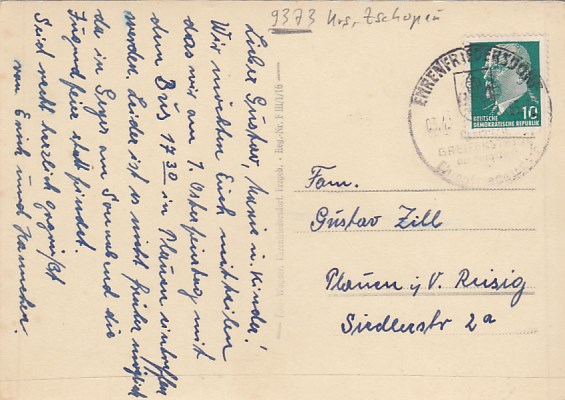 9373 Krs. Zschopau
Lieber Gustav, Marie u. Kinder!
Wir möchten Euch mitteilen
das wir am 1. Osterfeiertag mit
dem Bus 17 30 in Plauen eintreffen
werden. Leider ist es nicht früher möglich
da in Geyer am Sonnabend die
Jugendfeier stattfindet.
Seid recht herzlich gegrüßt
von Erich und Hannchen.
EHRENFRIEDERSDORF
DEUTSCHE
DEMOKRATISCHE REPUBLIK
10
Fam.
Gustav Zill
Plauen i/V. Reisig
Siedlerstr 2a